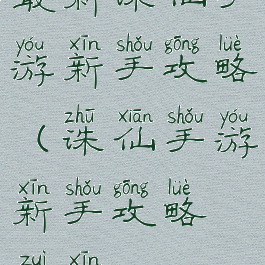 最新诛仙手
yóu xīn shǒu gōng lüè
游新手攻略
zhū xiān shǒu yóu
（诛仙手游
xīn shǒu gōng lüè
新手攻略
zuì xīn